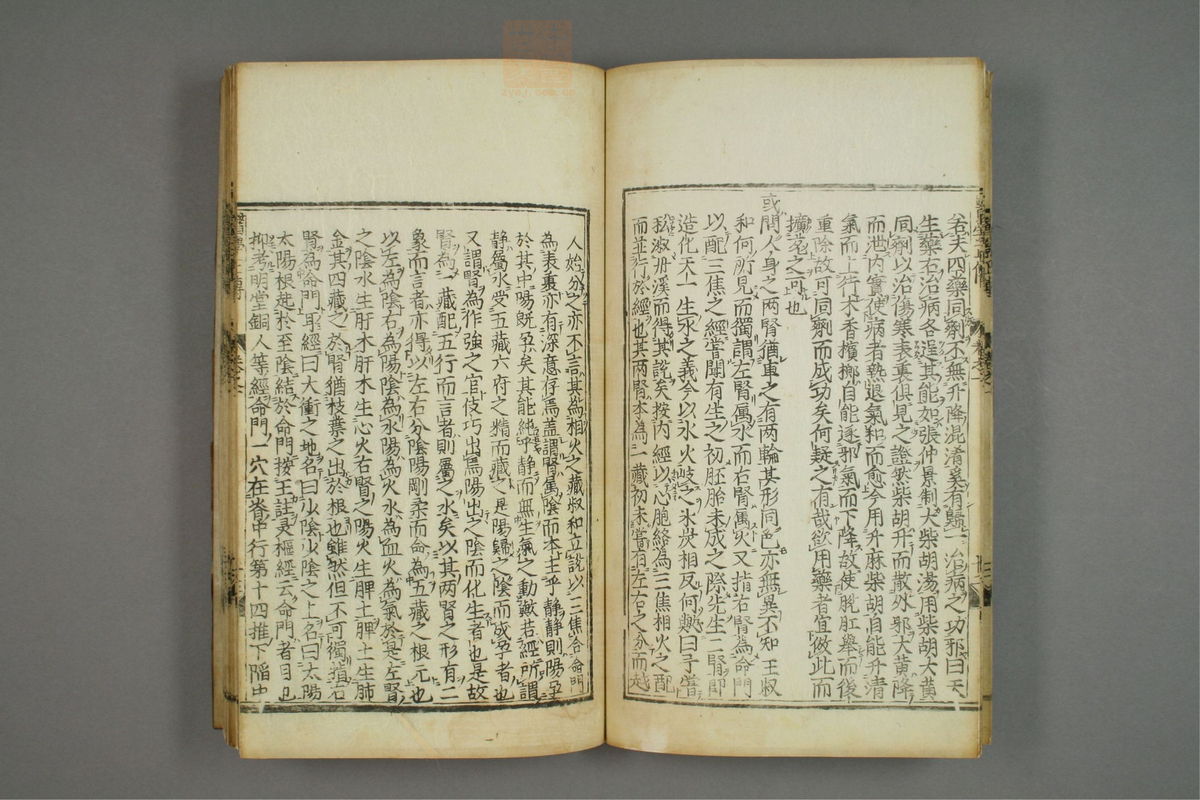 若夫四藥同劑不無升降混淆奚有驗一治病之功邪曰天
生藥石治病各逞其能如張仲景制大柴胡湯用柴胡大黃
同劑以治傷寒表裏俱見之證然柴胡升而散外邪大黃降
而泄内實使病者熱退氣和而愈今用升麻柴胡自能升清
氣而上行木香擯榔自能逐邪氣而下降故使脫肛舉而後
重除故可同劑而成功矣何疑之有哉欲用藥者宜倣此而
擴充之可也
或問人身之兩腎猶車之有兩輪其形同色亦無異不知王叔
和何所見而獨謂左腎属水而右腎属火又指右腎為命門
以配三焦之經嘗聞有生之初胚胎未成之際先生二腎即
造化天一生水之義今以水火岐之氷炭相反何歟曰予嘗
私淑丹溪而得其說矣按内經以心胞絡為三焦相火之配
而並行於經也其兩腎本為一藏初未嘗有左右之分而越
人始分之亦不言其為相火之藏叔和立說以三焦合命門
為表裏亦有深意存焉盖謂腎属陰而本主乎靜靜則陽孕
於其中陽既孕矣其能純乎静而無生氣之動歟若經所謂
静屬水受五藏六府之精而藏之是陽歸之陰而成孕者也
又謂腎為作強之官伎巧出焉陽出之陰而化生者也是故
腎為一藏配五行而言者則屬之水矣以其两腎之形有二
象而言者亦得以左右分陰陽剛柔而命為五藏之根元也
以左為陰右為陽陰為水陽為火水為血火為氣於是左腎
之陰水生肝木肝木生心火右腎之陽火生脾土脾土生肺
金其四藏之於腎猶枝葉之出於根也雖然但不可獨指右
腎為命門耳經曰大衝之地名曰少陰少陰之上名曰太陽
太陽根起於至陰結於命門按王註灵樞經云命門者目也
抑考明堂銅人等經命門一穴在脊中行第十四推下陷中